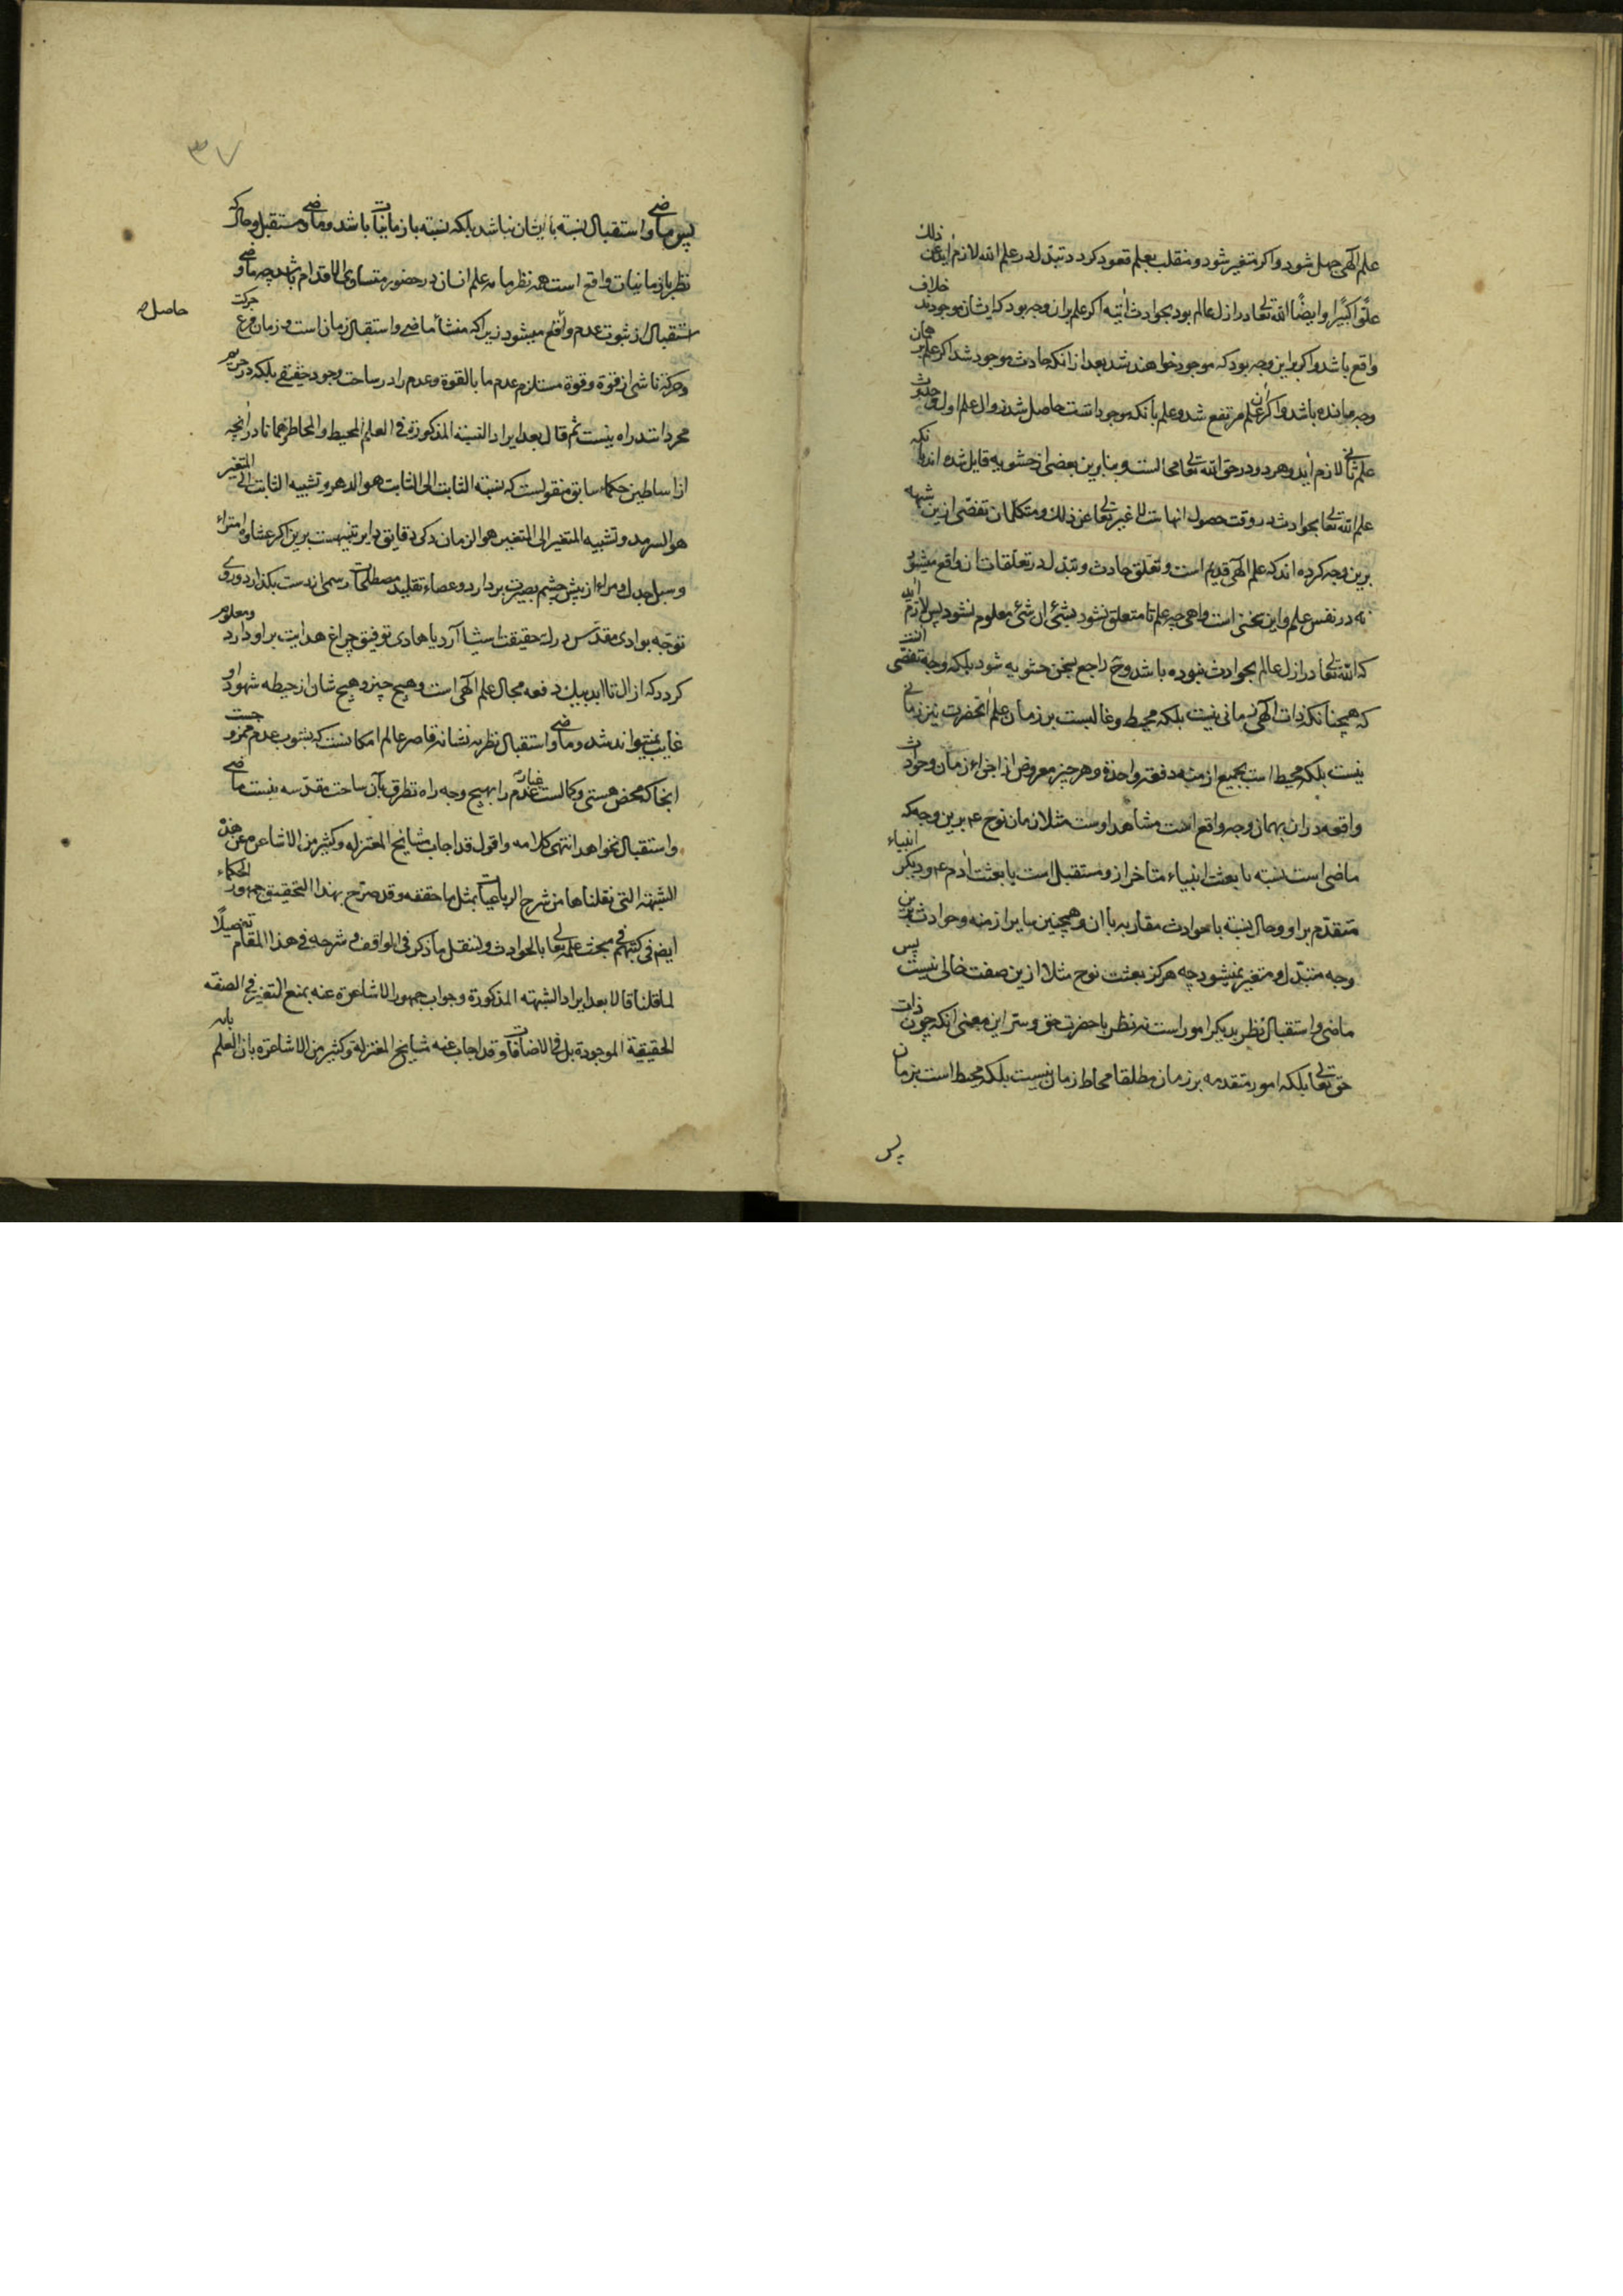 علم آلهی جهل شود و اکر متغیر شود و منقلب بعلم قعود کردد تبدل در علم الله لازم اید عن ذلک
علوّا کبیرًا و ایضًا الله تعالی در ازل عالم بود بحوادث آتیه اکر علم بران وجه بود که ایشان موجودند خلاف
واقع باشد و اکر براین وجه بود که موجود خواهند شد بعد از انکه حادث موجود شد اکر علم بر همان
وجه مانده باشد و اکر ان علم مرتفع شد و علم بآنکه موجود است حاصل شد زوال علم اول و حدوث
علم ثانی لازم آید و هر دو در حق الله تعالی محالست و بنابرین بعضی از حشویه قایل شده اند بآنکه
علم الله تعالی بحوادث در وقت حصول انهاست لا غیر تعالی عن ذلک و متکلمان تفصّی ازین شبهه
برین وجه کرده اند که علم الهی قدیم است و تعلق حادث و تبدل در تعلقات ان واقع میشود
نه در نفس علم و این سخنی است واهی چه علم تا متعلق نشود بشیٔ ان شیٔ معلوم نشود پس لازم آید
که الله تعالی در ازل عالم بحوادث نبوده باشد و ح راجع بسخن حشویه شود بلکه وجه تفصّی انست
که همچنانکه ذات الهی زمانی نیست بلکه محیط و غالبست بر زمان علم آنحضرت نیز زمانی
نیست بلکه محیط است بجمیع ازمنه دفعة واحدة و هر چیز معروض از اجزاء زمان و حوادث
واقعه در ان بهمان وجه واقع است مشاهد اوست مثلا زمان نوح ع برین وجه که
ماضی است نسبته با بعثت انبیاء متاخر از و مستقبل است با بعثت آدم ع و دیکر انبیاء
متقدم بر او و حال نسبة با حوادث مقاربه با ان و همچنین سایر ازمنه و حوادث برین
وجه متبدل و متغیر نمیشود چه هرکز بعثت نوح مثلا ازین صفت خالی نیست پس
ماضی و استقبال نظر بدیکر امور است نه نظر با حضرت حق و سر این معنی انکه چون ذات
حق تعالی بلکه امور متقدمه بر زمان مطلقا محاط زمان نیست بلکه محیط است بزمان
پس
٣٧
پس ماضی و استقبال نسبة بایشان نباشد بلکه نسبة با زمانیات باشد و ماضی و مستقبل و حال که
نظر با زمانیات واقع است همه نظر با علم انسان در حضور متساوی الاقدام باشد چه ماضی و
استقبال از ثبوت عدم واقع میشود زیرا که منشأ ماضی و استقبال زمان است و زمان حرکت
حاصل
و حرکة ناشی از قوة و قوة مستلزم عدم ما بالقوة و عدم را در ساحت وجود حقیقی بلکه در حریم
مجردات راه نیست ثم قال بعد ایراد النسبة المذکورة فی العلم المحیط و المحاط همانا در آنچه
از اساطین حکماء سابق منقولست که نسبة الثابت الی الثابت هو الدهر و نسبة الثابت الی المتغیر
هو السرمد و نسبة المتغیر الی المتغیر هو الزمان
و سبل جدل و مراء از پیش چشم بصیرت بردارد و عصاء تقلید مصطلحات رسمی از دست بکذارد و روی
توجه بوادی مقدس درک حقیقت اشیا آرد یا هادی توفیق چراغ هدایت بر او دارد و معلوم
کردد که ازل تا ابد بیک دفعه مجال علم آلهی است و هیچ چیز و هیچ شان از حیطه شهود او
غایب نمیتواند شد و ماضی و استقبال نظر به نشانه قاصر عالم امکانست که بشوب عدم ممزوجست
انجا که محض هستی و کمالست غبار عدم را بهیچ وجه راه تطرق بآن ساحت مقدسه نیست ماضی
و استقبال نخواهد انتهی کلامه و اقول قد اجاب مشایخ المعتزله و کثیر من الاشاعرة عن هذه
الشبهة التی نقلناها من شرح الرباعیات بمثل ما حققه و قد صرح بهذا التحقیق جمهور الحکماء
ایضا فی کتبهم فی مبحث علمه تعالی بالحوادث و لننقل ما ذکر فی المواقف و شرحه فی هذا المقام تفصیلًا
لما قلنا قالا بعد ایراد الشبهة المذکورة و جواب جمهور الاشاعرة عنه بمنع التغیر فی الصفة
الحقیقیة الموجودة بل فی الاضافات و قد اجاب عنه مشایخ المعتزلة و کثیر من الاشاعرة بان العلم بانه